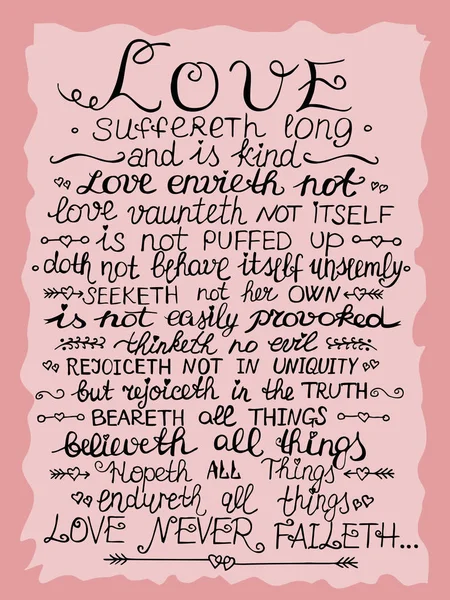 LOVE
suffereth long
and is kind
Love envieth not
love vaunteth NOT ITSELF
is not PUFFED UP
doth not behave itself unseemly
SEEKETH not her OWN
is not easily provoked
thinketh no evil
REJOICETH NOT IN UNIQUITY
but rejoiceth in the TRUTH
BEARETH all THINGS
believeth all things
Hopeth ALL Things
endureth all things
LOVE NEVER FAILETH...